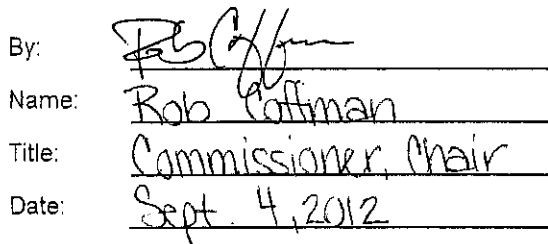 By: Rob Coffman
Name: Rob Coffman
Title: Commissioner, Chair
Date: Sept. 4, 2012